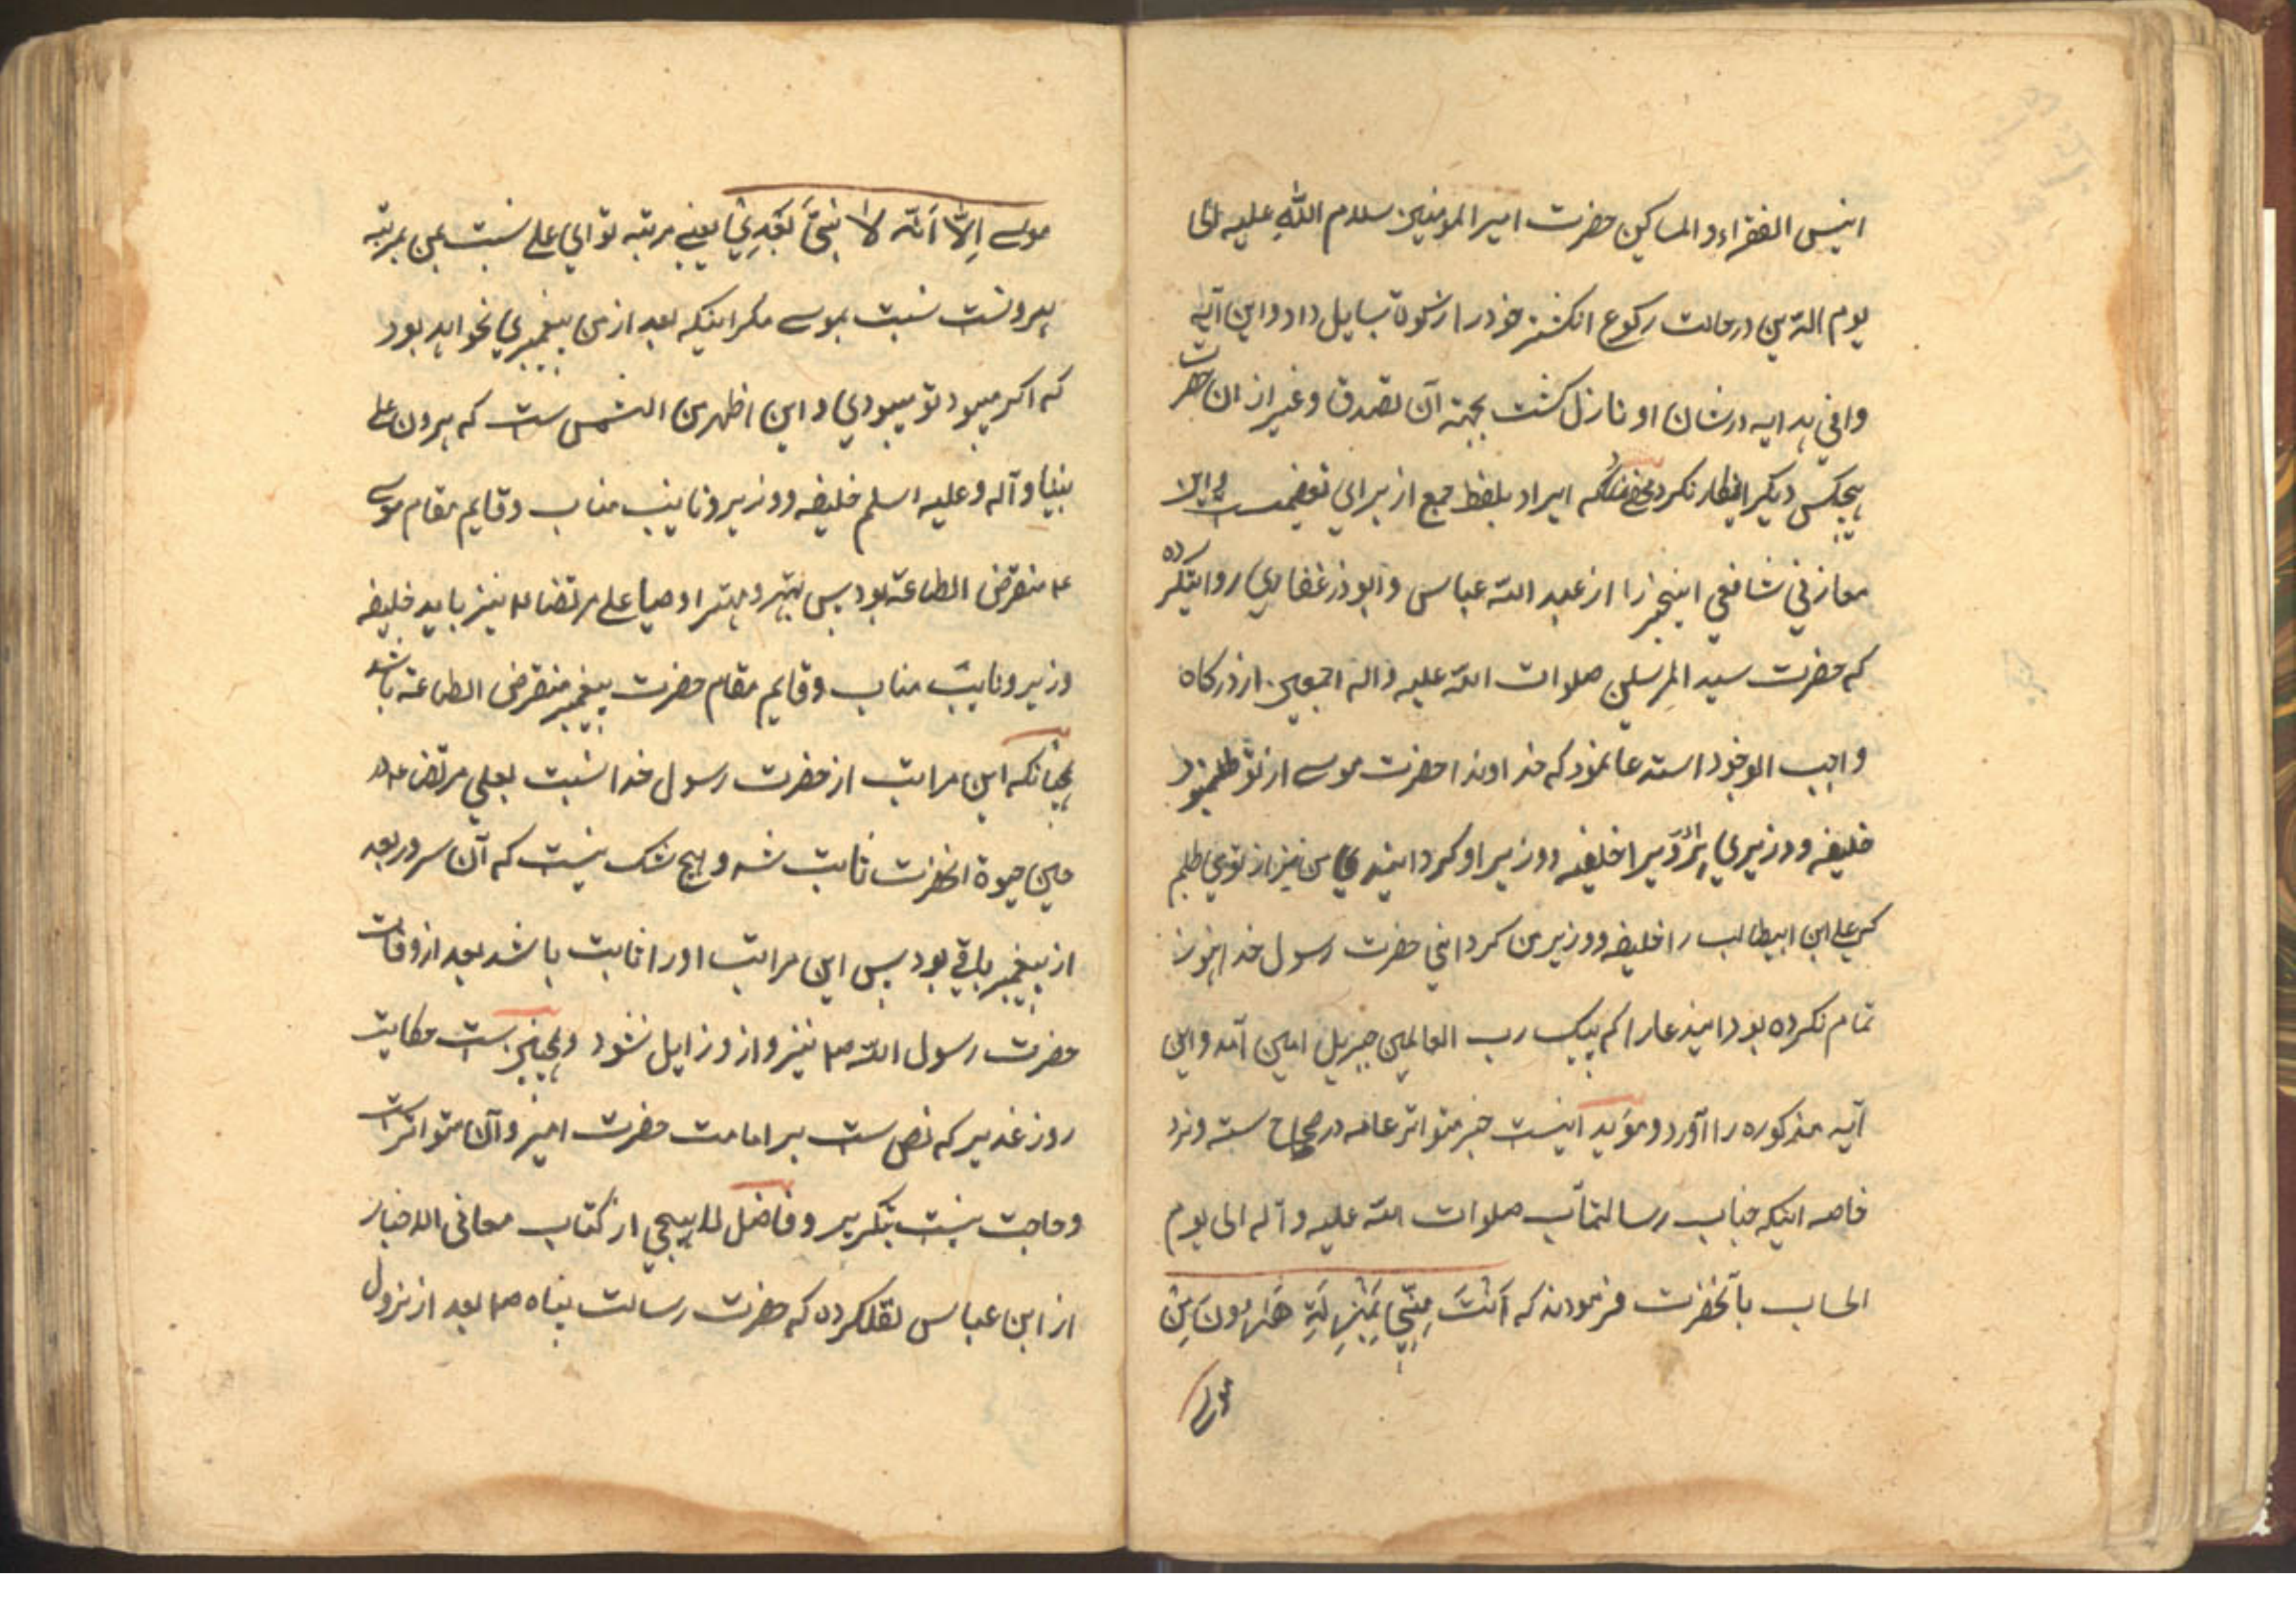 انیس الفقراء و المساکین حضرت امیرالمومنین سلام الله علیه الی
یوم الدین در حالت رکوع انکشتر خود را از شوه بسایل داد و این آیه
وافی هدایه در شان او نازل کشت بجهته آن تصدق و غیر از ان حضرت
هیچکس دیکر ایثار نکرد که ایراد بلفظ جمع از برای تعظیمست و ابن
معازنی شافعی اینخبر را از عبد الله عباس و ابوذر غفاری روایتکرده
که حضرت سید المرسلین صلوات الله علیه و اله اجمعین از درکاه
واجب الوجود استدعا نمود که خداوندا حضرت موسی از تو طلبنمود
خلیفه و وزیری برادر را خلیفه و وزیر او کردانیدی من نیز از تو می طلبم
کی علی ابن ابیطالب را خلیفه و وزیر من کردانی حضرت رسول خدا هنوز
تمام نکرده بود ایندعا را که پیک رب العالمین جبریل امین آمد و این
آیه مذکوره را آورد و موید اینست خبر متواتر عامه در صحاح سته و نزد
خاصه اینکه جناب رسالتمآب صلوات الله علیه و آله الی یوم
الحساب بآنحضرت فرمودند که اَنْتَ مِنّی بِمَنْزِلَةِ هَارُونَ مِنْ
موسی
موسی اِلّا اَنّه لا نبیَّ بَعْدِیْ یعنی مرتبه تو ای علی نسبت بمن بمرتبه
هرونست نسبت بموسی مکر اینکه بعد از من پیغمبری نخواهد بود
که اکر میبود تو میبودی و این اظهر من الشمس ست که هرون علی
نبینا و آله و علیه اسلم خلیفه و وزیر و نایب مناب و قایم مقام موسی
ع منقرض الطاعته بود پس بهتر و مهتر اوصیا علی مرتضا ع نیز باید خلیفه
وزیر و نایب مناب و قایم مقام حضرت پیغمبر منقرض الطاعته باشد
چنانکه این مراتب از حضرت رسول خدا نسبت بعلی مرتضی ع در
حین حیوة انحضرت ثابت شه و هیچ شک نیست که آن سرور بعد
از پیغمبر باقی بود پس این مراتب او را ثابت باشد بعد از وفات
حضرت رسول الله ص نیز و از و زایل نشود و همچنین ست حکایت
روز غدیر که نص ست بر امامت حضرت امیر و آن متواترست
و حاجت نیست بتکریر و فاضل لاهیجی از کتاب معانی الاخبار
از ابن عباس نقلکرده که حضرت رسالت پناه ص بعد از نزول